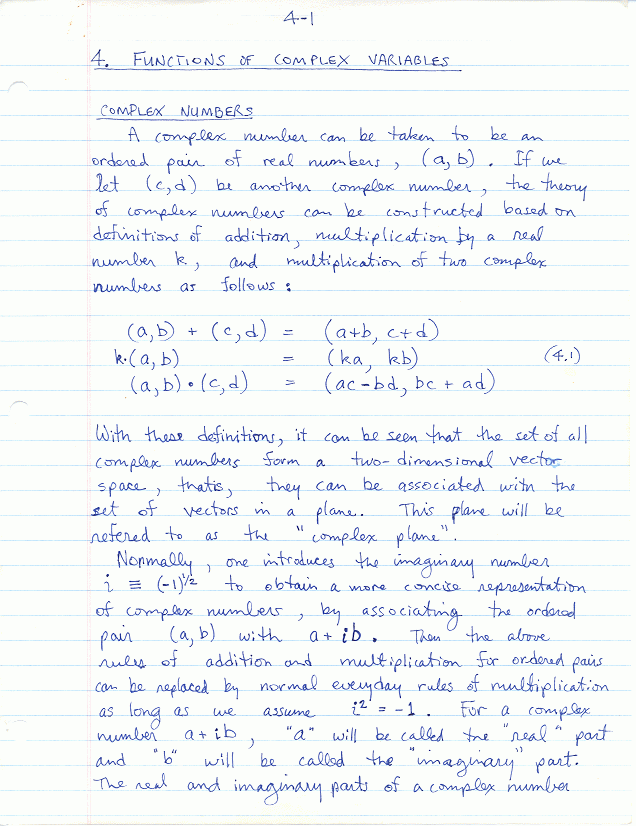 4-1
4. FUNCTIONS OF COMPLEX VARIABLES
COMPLEX NUMBERS
A complex number can be taken to be an
ordered pair of real numbers, (a,b). If we
let (c,d) be another complex number, the theory
of complex numbers can be constructed based on
definitions of addition, multiplication by a real
number k, and multiplication of two complex
numbers as follows:
(a,b) + (c,d) = (a+b, c+d)
k·(a,b) = (ka, kb) (4.1)
(a,b)·(c,d) = (ac-bd, bc + ad)
With these definitions, it can be seen that the set of all
complex numbers form a two-dimensional vector
space, thatis, they can be associated with the
set of vectors in a plane. This plane will be
refered to as the "complex plane".
Normally, one introduces the imaginary number
i ≡ (-1)^1/2 to obtain a more concise representation
of complex numbers, by associating the ordered
pair (a,b) with a + ib. Then the above
rules of addition and multiplication for ordered pairs
can be replaced by normal everyday rules of multiplication
as long as we assume i² = -1. For a complex
number a + ib, "a" will be called the "real" part
and "b" will be called the "imaginary" part.
The real and imaginary parts of a complex number